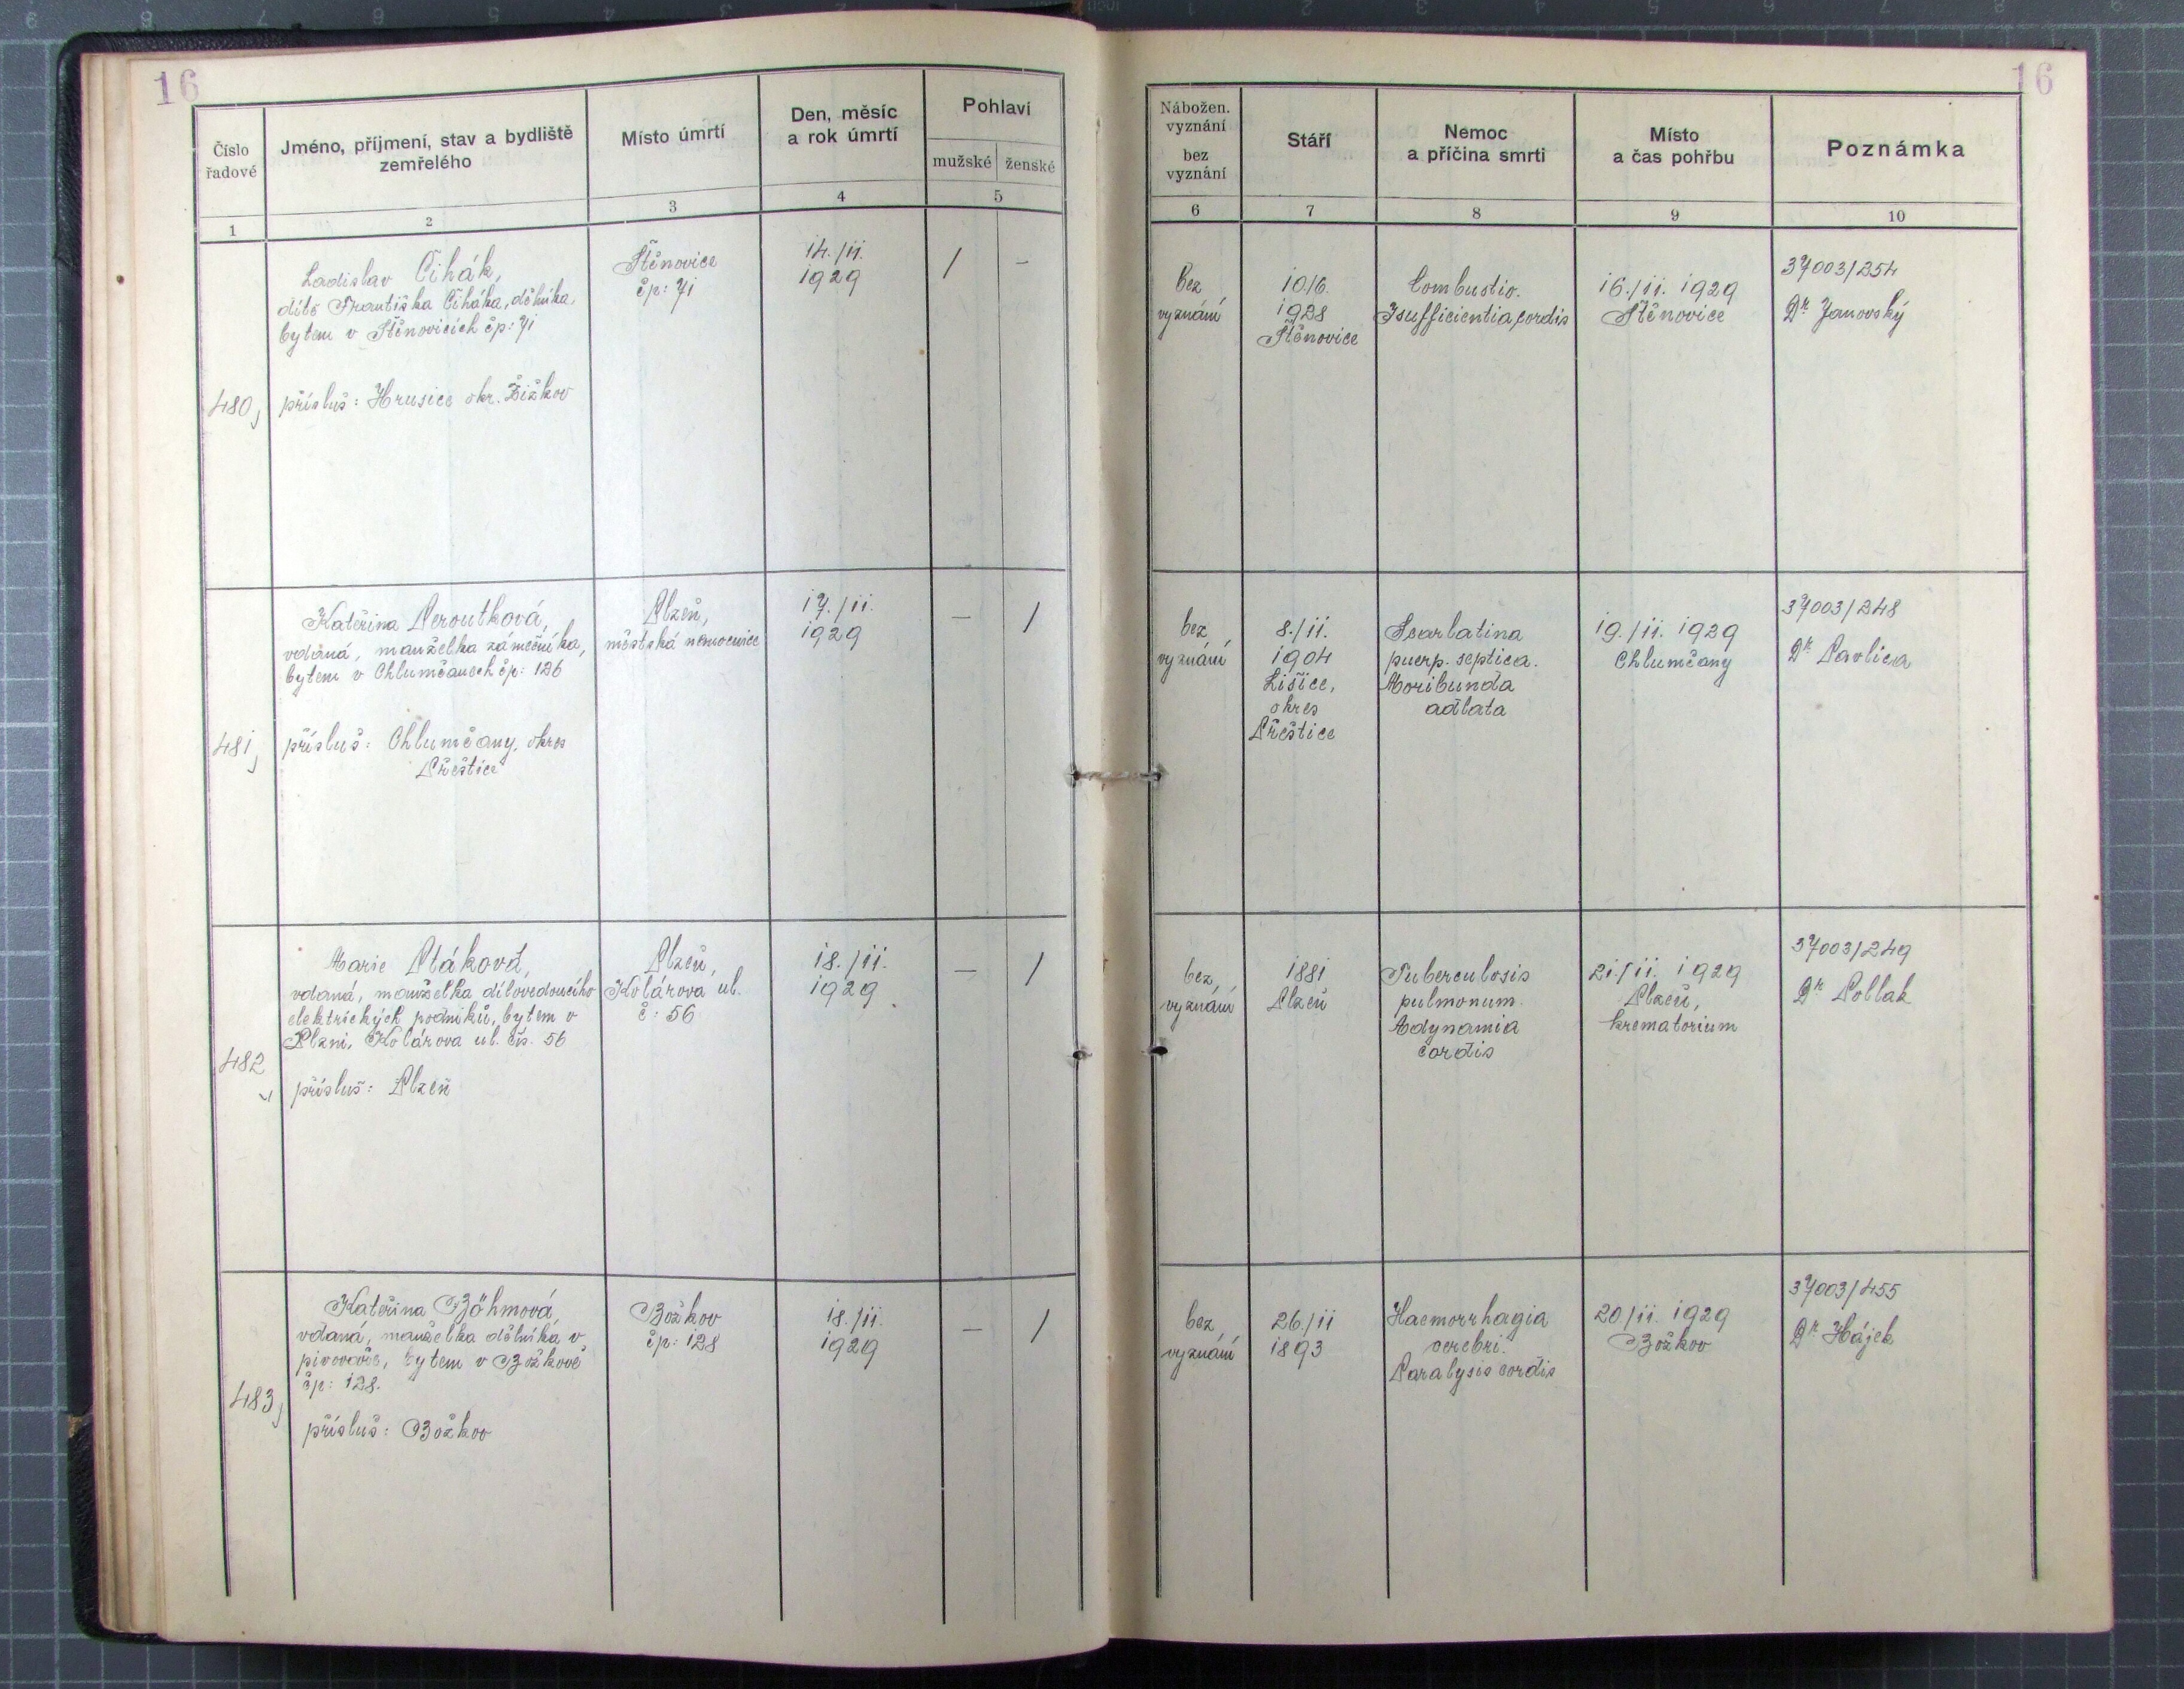 16
16
Číslo
řadové
Jméno, příjmení, stav a bydliště
zemřelého
Místo úmrtí
Den, měsíc
a rok úmrtí
Pohlaví
mužské
ženské
1
2
3
4
5
Nábožen.
vyznání
bez
vyznání
Stáří
Nemoc
a příčina smrti
Místo
a čas pohřbu
Poznámka
6
7
8
9
10
480
Ladislav Čihák,
dítě Františka Čiháka, dělníka,
bytem v Štěnovicích čp: 71
přísluš: Hrusice okr. Žižkov
Štěnovice
čp: 71
14./11.
1929
/
–
bez
vyznání
10/6.
1928
Štěnovice
Combustio.
Isufficientia cordis
16./11. 1929
Štěnovice
37003/254
Dr Janovský
481
Kateřina Peroutková,
vdaná, manželka zámečníka,
bytem v Chlumčanech čp: 126
přísluš: Chlumčany, okres
Přeštice
Plzeň,
městská nemocnice
17./11.
1929
–
/
bez
vyznání
8./11.
1904
Lišice,
okres
Přeštice
Scarlatina
puerp. septica.
Moribunda
adlata
19./11. 1929
Chlumčany
37003/248
Dr Pavlica
482
Marie Ptáková,
vdaná, manželka dílovedoucího
elektrických podniků, bytem v
Plzni, Kolárova ul. čís. 56
přísluš: Plzeň
Plzeň,
Kolárova ul.
č: 56
18./11.
1929
–
/
bez
vyznání
1881
Plzeň
Tuberculosis
pulmonum.
Adynamia
cordis
21./11. 1929
Plzeň,
krematorium
37003/249
Dr Pollak
483
Kateřina Böhmová,
vdaná, manželka dělníka v
pivovaře, bytem v Božkově
čp: 128.
přísluš: Božkov
Božkov
čp: 128
18./11.
1929
–
/
bez
vyznání
26./11
1893
Haemorrhagia
cerebri.
Paralysis cordis
20./11. 1929
Božkov
37003/455
Dr Hájek